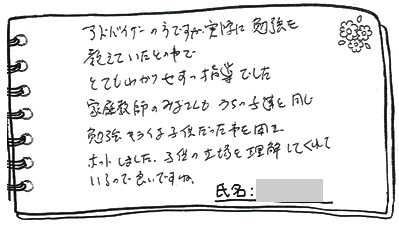 アドバイザーの方ですが、実際に勉強を
教えていただきので
とてもわかりやすい指導でした
家庭教師のみなさんも うちの子達と同じ
勉強キライな子供だった事を聞き
ホットしました。子供の立場を理解してくれて
いるので良いですね。
氏名: